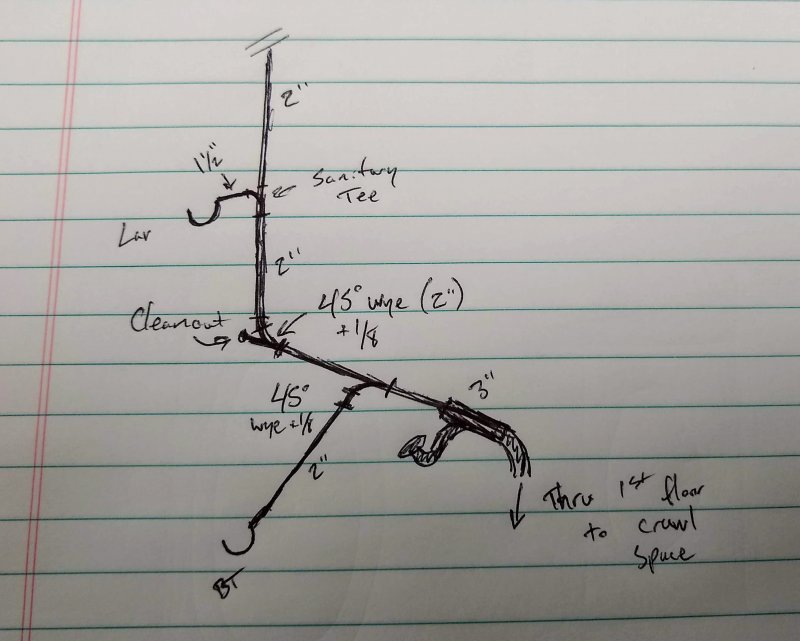 2"
1½"
Sanitary
Tee
Lav
2"
Cleanout
45° wye (2")
+ 1/8
45°
wye + 1/8
3"
2"
Thru 1st floor
to crawl
space
BT